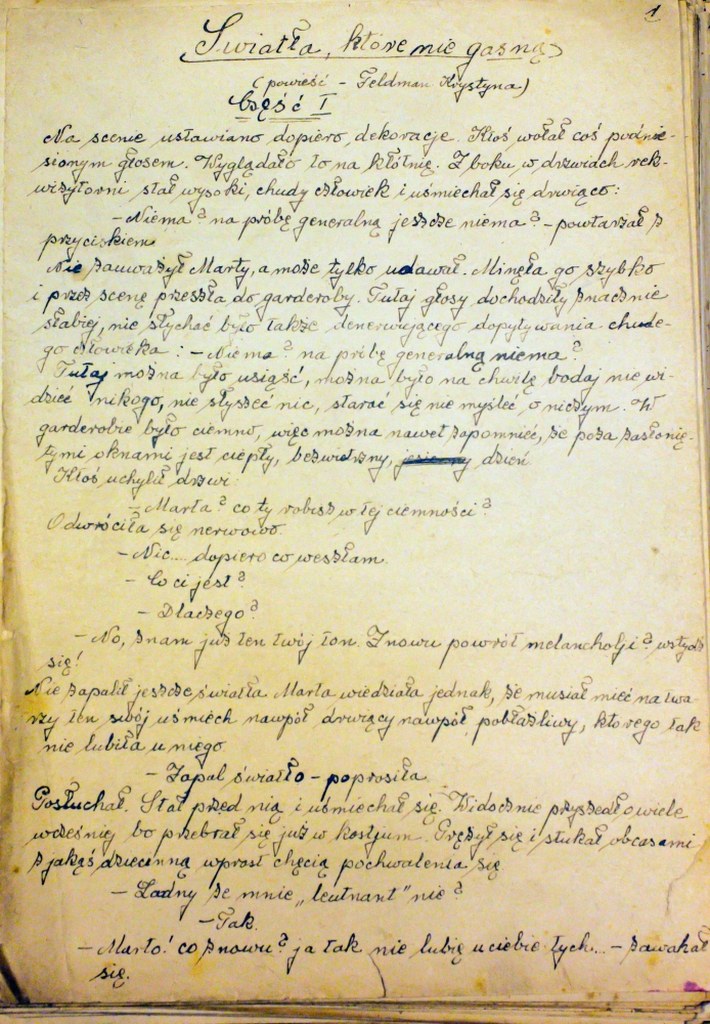 1
Światła, które nie gasną
(powieść – Feldman Krystyna)
Część I
Na scenie ustawiano dopiero dekoracje. Ktoś wołał coś podnie-
sionym głosem. Wyglądało to na kłótnię. Z boku w drzwiach rek-
wizytorni stał wysoki, chudy człowiek i uśmiechał się drwiąco:
– Niema? na próbę generalną jeszcze niema? – powtarzał z
przyciskiem.
Nie zauważył Marty, a może tylko udawał. Minęła go szybko
i przez scenę przeszła do garderoby. Tutaj głosy dochodziły znacznie
słabiej, nie słychać było także denerwującego dopytywania chude-
go człowieka: – Niema? na próbę generalną niema?
Tutaj można było usiąść, można było na chwilę bodaj nie wi-
dzieć nikogo, nie słyszeć nic, starać się nie myśleć o niczym. W
garderobie było ciemno, więc można nawet zapomnieć, że poza zasłonię-
tymi oknami jest ciepły, bezwietrzny, jesienny dzień
Ktoś uchylił drzwi:
– Marta? co ty robisz w tej ciemności?
Odwróciła się nerwowo.
– Nic.... dopiero co weszłam.
– Co ci jest?
– Dlaczego?
– No, znam już ten twój ton. Znowu powrót melancholji? wstydź
się!
Nie zapalił jeszcze światła Marta wiedziała jednak, że musiał mieć na twa-
rzy ten swój uśmiech nawpół drwiący nawpół pobłażliwy, którego tak
nie lubiła u niego.
– Zapal światło – poprosiła.
Posłuchał. Stał przed nią i uśmiechał się. Widocznie przyszedł o wiele
wcześniej bo przebrał się już w kostjum. Prężył się i stukał obcasami
z jakąś dziecinną wprost chęcią pochwalenia się
– Ładny ze mnie „leutnant" nie?
– Tak.
– Marto! co znowu? ja tak nie lubię u ciebie tych... – zawahał
się.